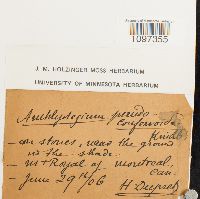 1097355
J. M. HOLZINGER MOSS HERBARIUM
UNIVERSITY OF MINNESOTA HERBARIUM
Amblystegium pseudo-
confervoides
Kindb
- on stones, near the ground
in the shade
Mt Royal of Montreal
Can.
June 29th/06
H Dupret